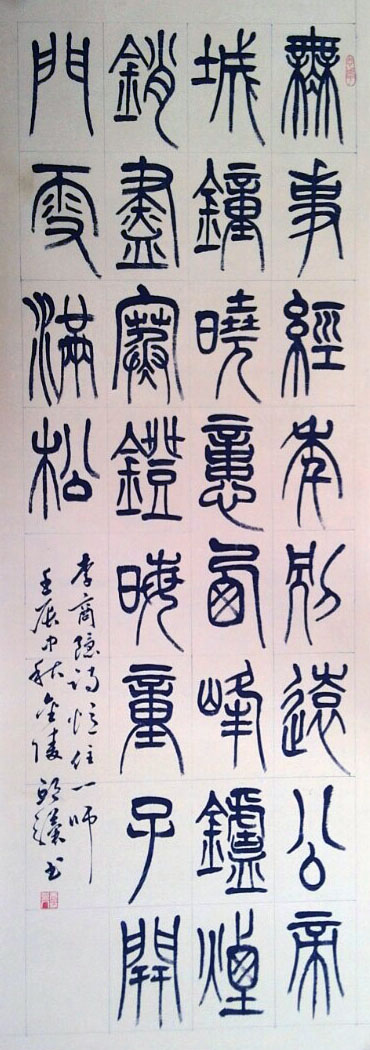 無事經年別遠公帝
城鐘曉憶西峰鑪煙
銷盡寒鐙晦童子開
門雪滿松
李商隐诗忆住一师
壬辰中秋金陵 书